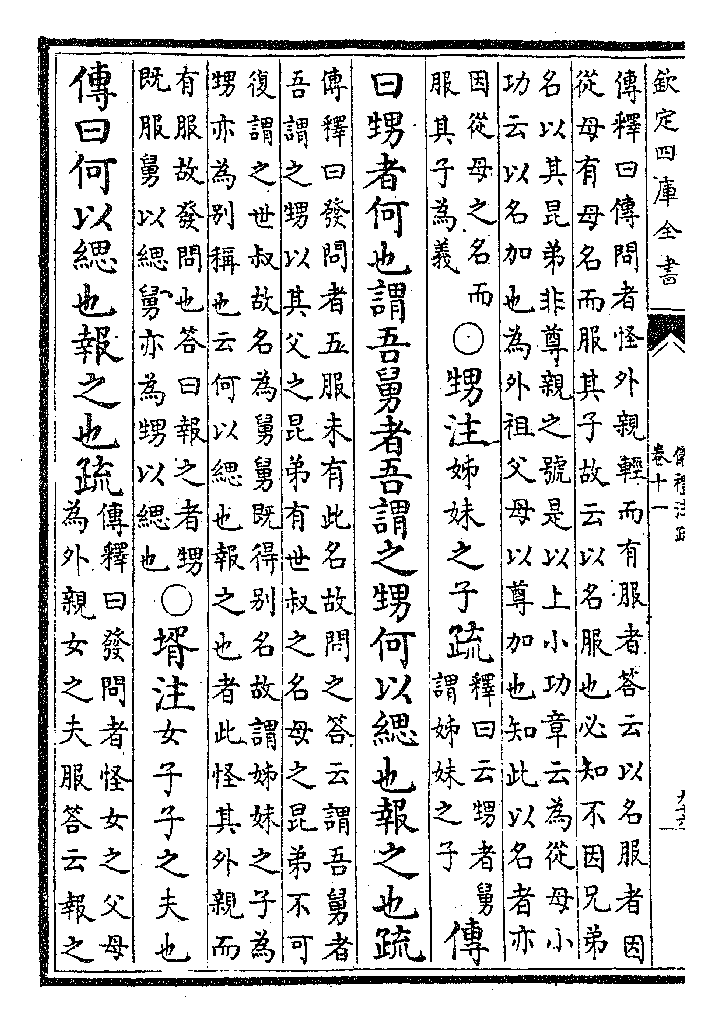 欽定四庫全書
儀禮注疏
卷十一
傳釋曰傳問者怪外親輕而有服者答云以名服者因
從母有母名而服其子故云以名服也必知不因兄弟
名以其昆弟非尊親之號是以上小功章云為從母小
功云以名加也為外祖父母以尊加也知此以名者亦
因從母之名而
服其子為義
○甥注姊妹之子疏
釋曰云甥者舅
謂姊妹之子
傳
曰甥者何也謂吾舅者吾謂之甥何以緦也報之也疏
傳釋曰發問者五服未有此名故問之答云謂吾舅者
吾謂之甥以其父之昆弟有世叔之名母之昆弟不可
復謂之世叔故名為舅舅既得別名故謂姊妹之子為
甥亦為別稱也云何以緦也報之也者此怪其外親而
有服故發問也答曰報之者甥
既服舅以緦舅亦為甥以緦也
○壻注女子子之夫也
傳曰何以緦也報之也疏
傳釋曰發問者怪女之父母
為外親女之夫服答云報之